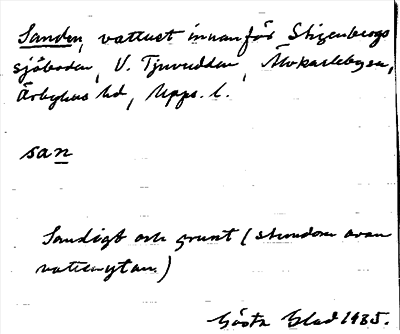 Sanden, vattnet innanför Stigenbergs
sjöbodan, V. Tjuvudden, Älvkarleby sn,
Örbyhus hd, Upps. l.
san
Sandigt och grunt (stundom ovan
vattenytan)
Gösta Blad 1935.